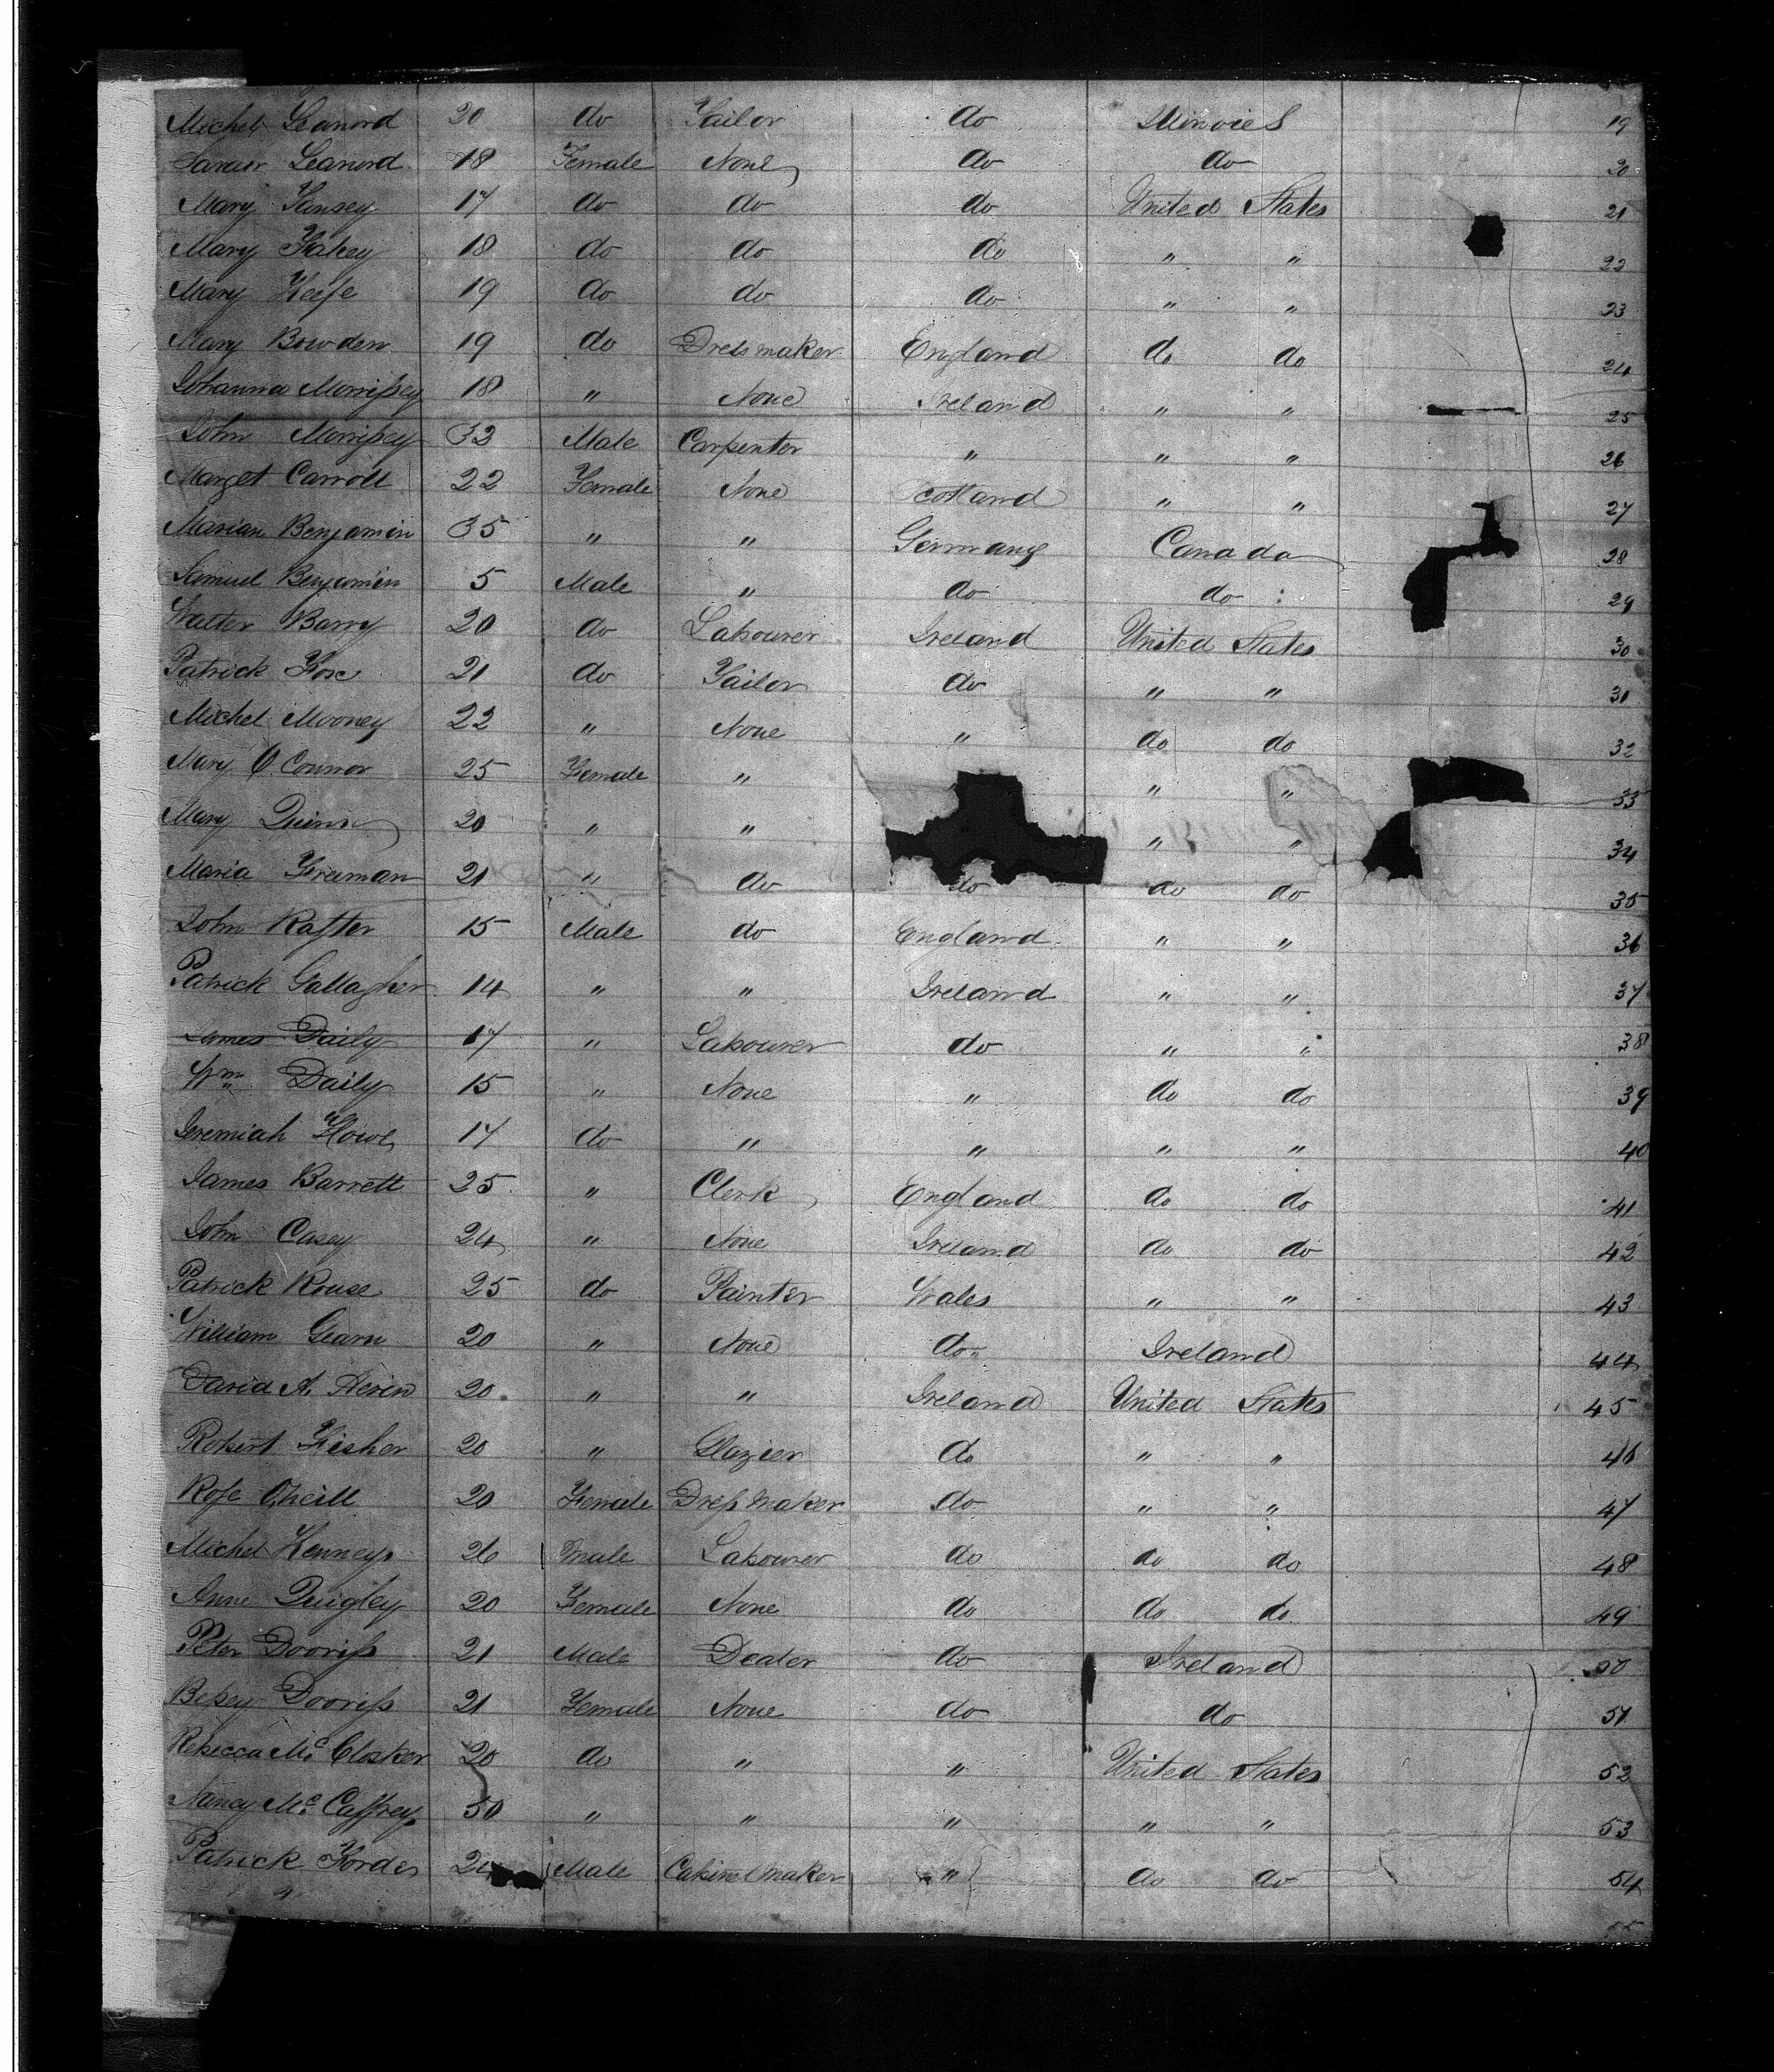 Michel Leanord 20 do Tailor do Illinoies 19
Leanord 18 Female None do do 20
Mary 17 do do do United States 21
Mary Fahey 18 do do do " " 22
Mary Keefe 19 do do do " " 23
Mary Bowden 19 do Dressmaker England do do 24
Johanna Morrissey 18 " None Ireland " " 25
John Morrissey 32 Male Carpenter " " " 26
Marget Carroll 22 Female None Scotland " " 27
Marian Benjamin 35 " " Germany Canada 28
Samuel Benjamin 5 Male " do do 29
Walter Barry 20 do Labourer Ireland United States 30
Patrick Fox 21 do Tailor do " " 31
Michel Mooney 22 " None " do do 32
Mary O. Connor 25 Female " " " 33
Mary Quinn 20 " " " " 34
Maria Freeman 21 " do do do do 35
John Rafter 15 Male do England " " 36
Patrick Gallagher 14 " " Ireland " " 37
James Daily 17 " Labourer do " " 38
Wm Daily 15 " None " do do 39
Jeremiah Howe 17 do " " " " 40
James Barrett 25 " Clerk England do do 41
John Casey 24 " None Ireland do do 42
Patrick Rouse 25 do Painter Wales " " 43
William 20 " None do Ireland 44
David A. 20 " " Ireland United States 45
Robert Fisher 20 " Glazier do " " 46
Rose O,neill 20 Female Dress maker do " " 47
Michel Kenney 26 Male Labourer do do do 48
Anne Quigley 20 Female None do do do 49
Peter Dooriss 21 Male Dealer do Ireland 50
Betsey Dooriss 21 Female None do do 51
Rebecca Mc Closker 20 do " " United States 52
Nancy Mc Caffrey 50 " " " " " 53
Patrick Forde 2 Male Cabinetmaker " do do 54
55